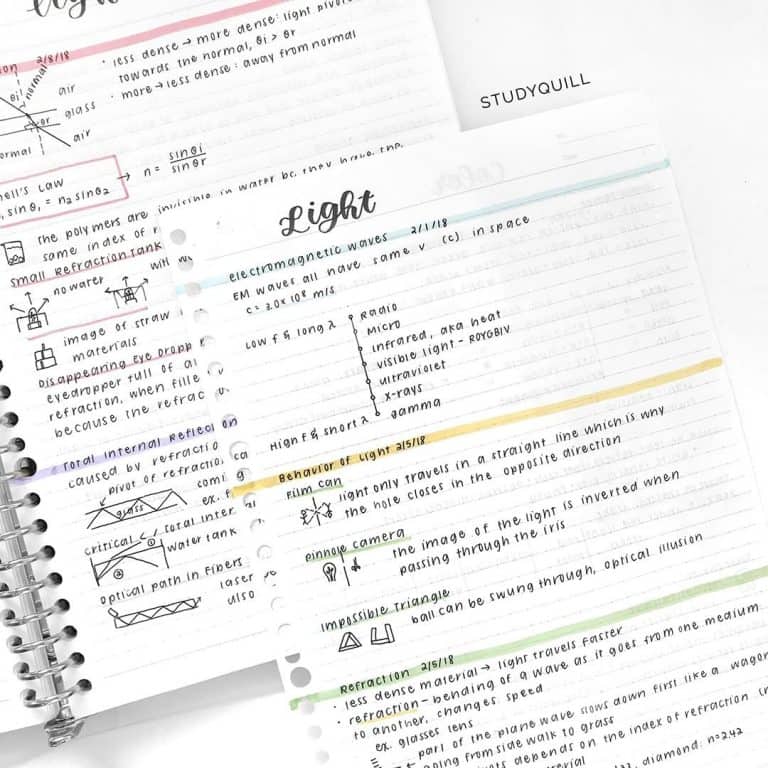 STUDYQUILL
Light
electromagnetic waves 2/1/18
EM waves all have same v (c) in space
c = 3.0 x 10⁸ m/s
Low f & long λ
Radio
Micro
infrared, aka heat
visible light - ROYGBIV
ultraviolet
x-rays
gamma
High f & short λ
Behavior of Light 2/5/18
Film can
light only travels in a straight line which is why
the hole closes in the opposite direction
pinhole camera
the image of the light is inverted when
passing through the iris
Impossible Triangle
ball can be swung through, optical illusion
Refraction 2/5/18
• less dense material → light travels faster
• refraction - bending of a wave as it goes from one medium
to another, changes speed
ex. glasses lens
part of the plane wave slows down first like a wagon
going from side walk to grass
depends on the index of refraction
diamond: n=2.42
Light
2/8/18
• less dense → more dense: light pivots
towards the normal, θi > θr
• more → less dense: away from normal
normal
θi
air
glass
θr
air
normal
Snell's Law
sinθ₁ = n₂sinθ₂
→ n = sinθi
sinθr
The polymers are invisible in water bc they have the
same index of
Small Refraction Tank
no water
with
image of straw
materials
Disappearing Eye Dropp
eyedropper full of
refraction, when fille
because the refrac
Total Internal Reflection
caused by refractio
pivot of refractio
glass
comi
ex. f
critical
total inter
water tank
optical path in Fibers
laser
also